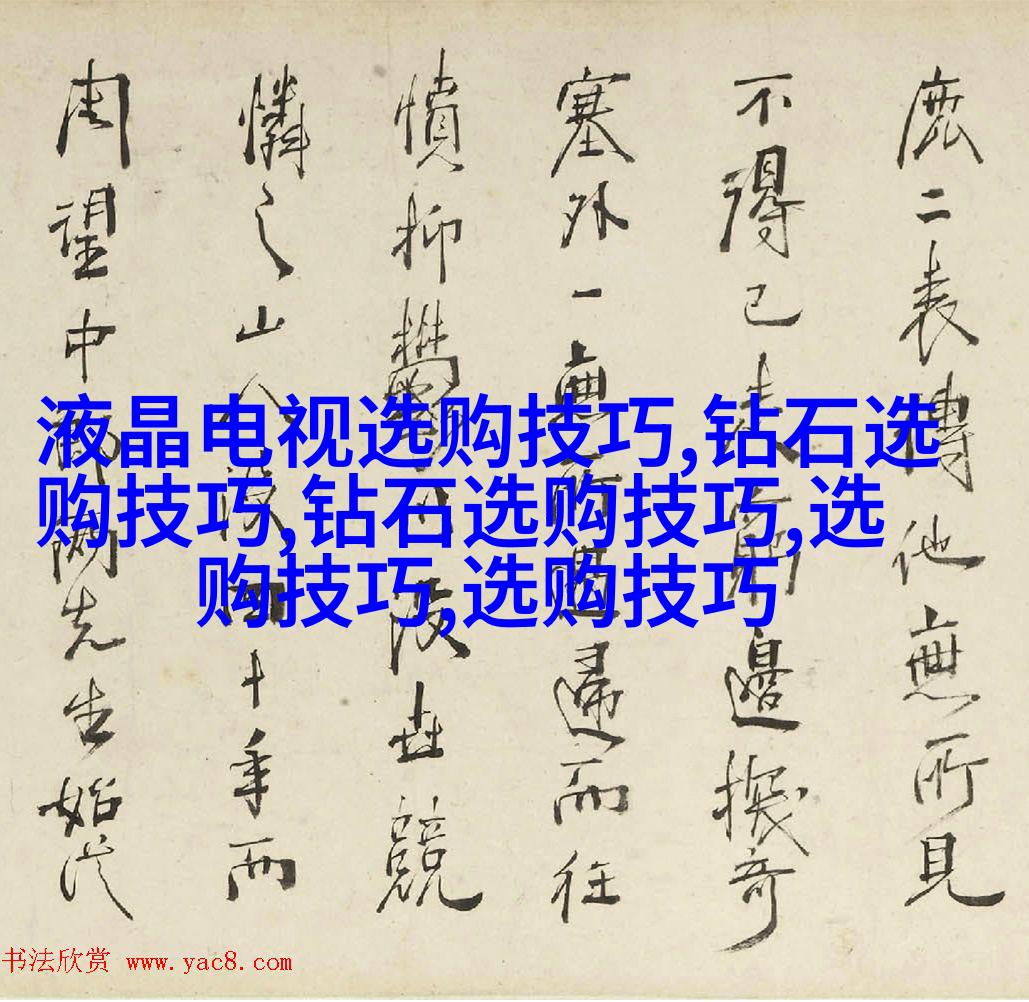 液晶电视选购技巧,钻石选
购技巧,钻石选购技巧,选
购技巧,选购技巧
鹿二表他無所見
不得已走邊探奇
塞外一無所遇歸而往
憤抑世競
憐之山十年而
周望中郎先生始從
书法欣赏 www.yac8.com